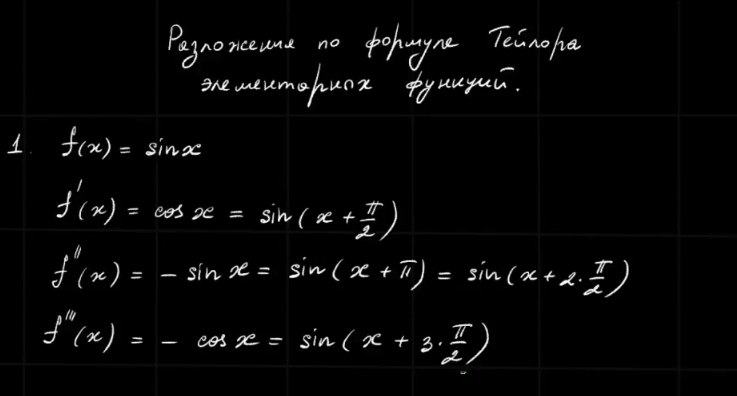 Разложения по формуле Тейлора
элементарных функций.
1. f(x) = sin x
f'(x) = cos x = sin(x + π/2)
f''(x) = - sin x = sin(x + π) = sin(x + 2·π/2)
f'''(x) = - cos x = sin(x + 3·π/2)